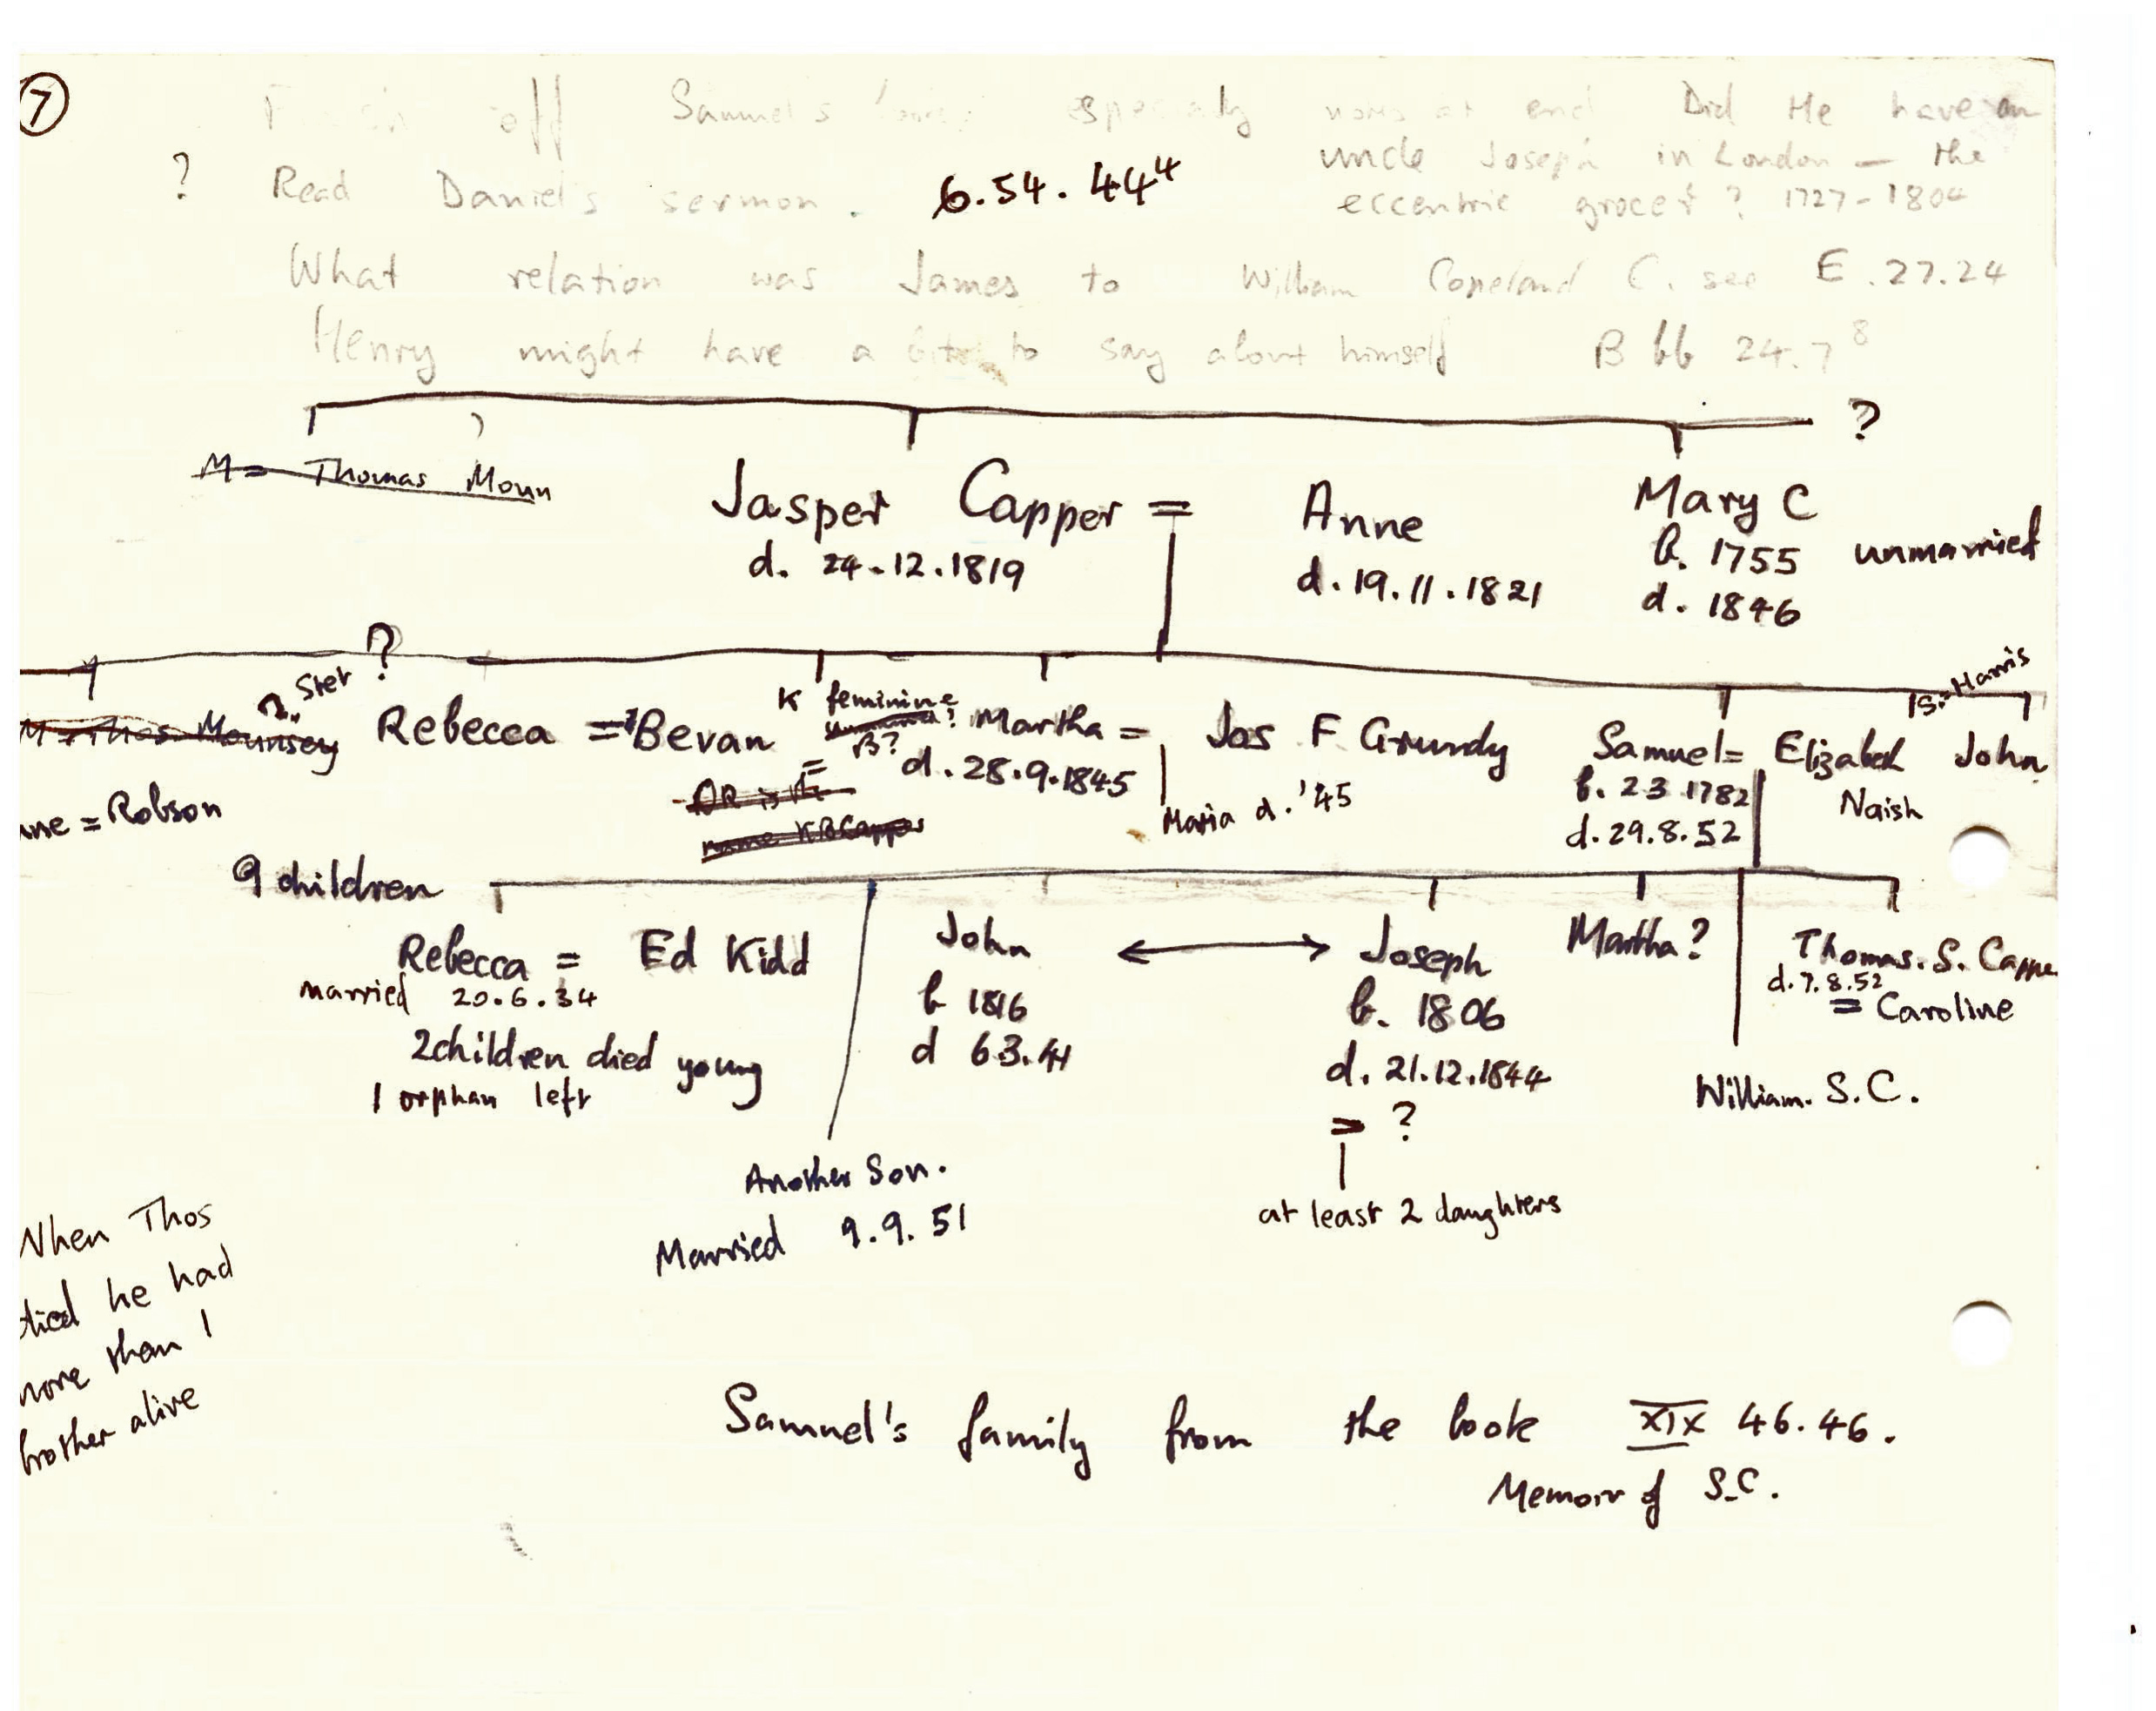 7
off Samuel's especially at end Did He have an
uncle Joseph in London — the
? Read Daniel's sermon. 6.54.44⁴
eccentric grocer? 1727-1804
What relation was James to William Copeland C. see E.27.24
Henry might have a bit to say about himself B bb 24.7⁸
?
M = Thomas Moun
Jasper Capper = Anne
d. 24.12.1819
d. 19.11.1821
Mary C
b. 1755 unmarried
d. 1846
?
2. Ster
M = Thos Mounsey
Rebecca = ¹Bevan
K feminine
B?
=
OR is the
name KBCapper
Martha = Jos F Grundy
d. 28.9.1845
Maria d. '45
Samuel = Elizabeth
Naish
b. 23 1782
d. 29.8.52
John
= Harris
ne = Robson
9 children
Rebecca = Ed Kidd
married 20.6.34
2 children died young
1 orphan left
John ↔ Joseph
b 1816
d 6.3.41
b. 1806
d. 21.12.1844
= ?
at least 2 daughters
Martha?
Thomas. S. Cappe
d. 7.8.52
= Caroline
William. S.C.
Another Son.
Married 9.9.51
When Thos
died he had
more than 1
brother alive
Samuel's family from the book XIX 46.46.
Memoir of S.C.